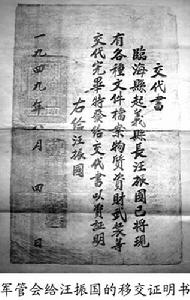 交代書
臨海縣起義縣長汪振國已將現
有各種文件檔案物資資財武裝等
交代完畢特發給交代書以資証明
右給汪振國
一九四九年八月四日
军管会给汪振国的移交证明书